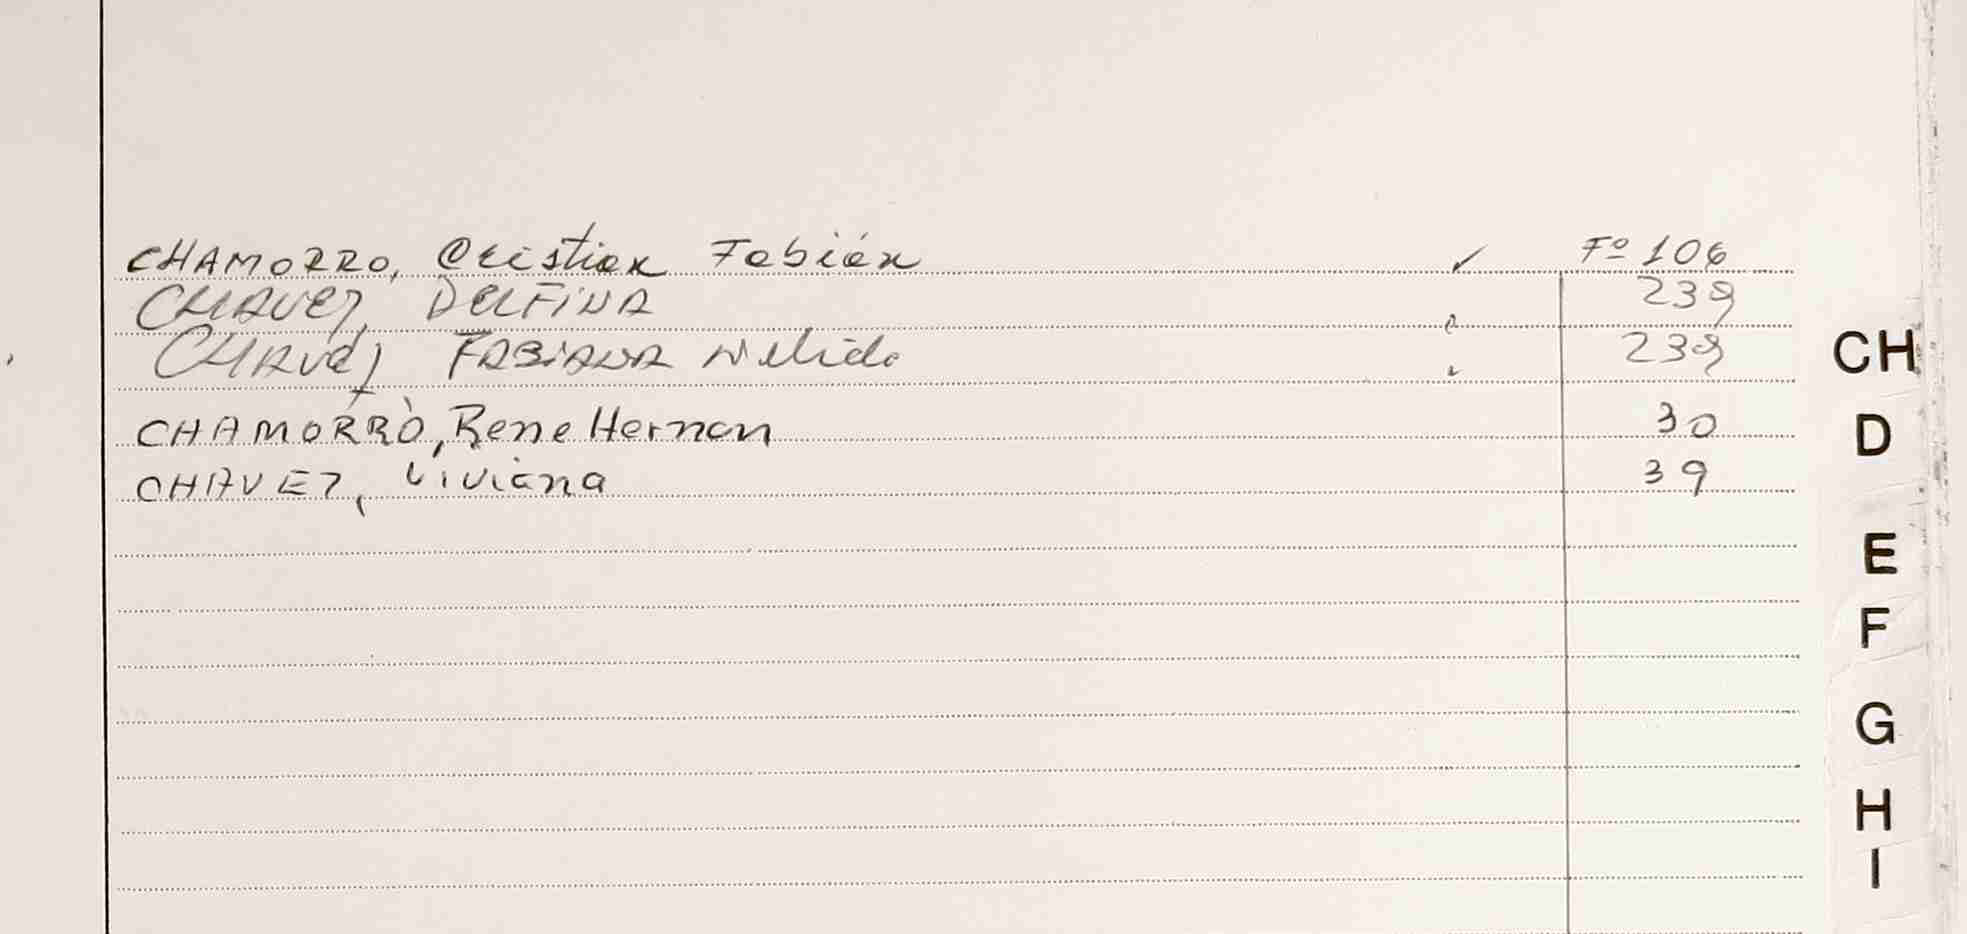 CHAMORRO, Cristian Fabián ✓ Fº 106
CHAVEZ, DELFINA 239
CHAVEZ, FABIANA Nelida 239
CHAMORRO, Rene Hernan 30
CHAVEZ, Viviana 39
CH
D
E
F
G
H
I